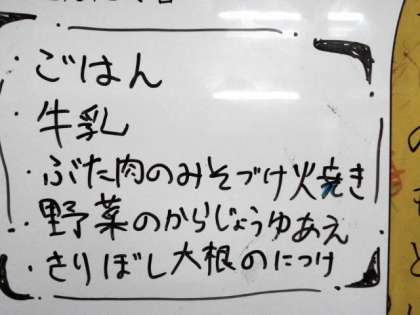 ・ごはん
・牛乳
・ぶた肉のみそづけ火焼き
・野菜のからじょうゆあえ
・きりぼし大根のにつけ